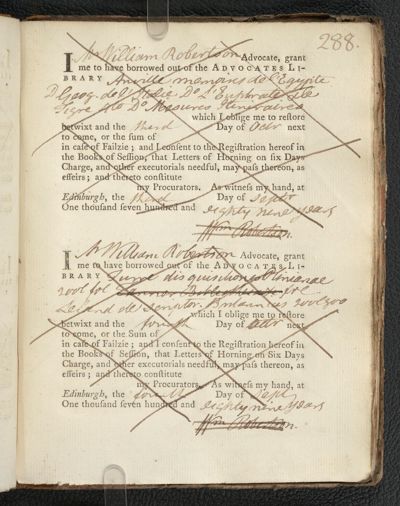 288.
I Mr William Robertson Advocate, grant
me to have borrowed out of the ADVOCATES LI-
BRARY Anville memoires de l'Egypte
Do Geog. de Do L'Euphrate et le
Tigre 4to Do Mesures Itineraires
which I oblige me to restore
betwixt and the third Day of Octr next
to come, or the sum of
in case of Failzie; and I consent to the Registration hereof in
the Books of Session, that Letters of Horning on six Days
Charge, and other executorials needful, may pass thereon, as
effeirs; and thereto constitute
my Procurators. As witness my hand, at
Edinburgh, the third Day of Septr
One thousand seven hundred and eighty nine years
Wm Robertson.
I Mr William Robertson Advocate, grant
me to have borrowed out of the ADVOCATES LI-
BRARY disquisitiones
2 vol fol
Leland de Scriptor. Britannicis 2 vol
which I oblige me to restore
betwixt and the fourth Day of Octr next
to come, or the Sum of
in case of Failzie; and I consent to the Registration hereof in
the Books of Session, that Letters of Horning on Six Days
Charge, and other executorials needful, may pass thereon, as
effeirs; and thereto constitute
my Procurators. As witness my hand, at
Edinburgh, the fourth Day of Septr
One thousand seven hundred and eighty nine years
Wm Robertson.